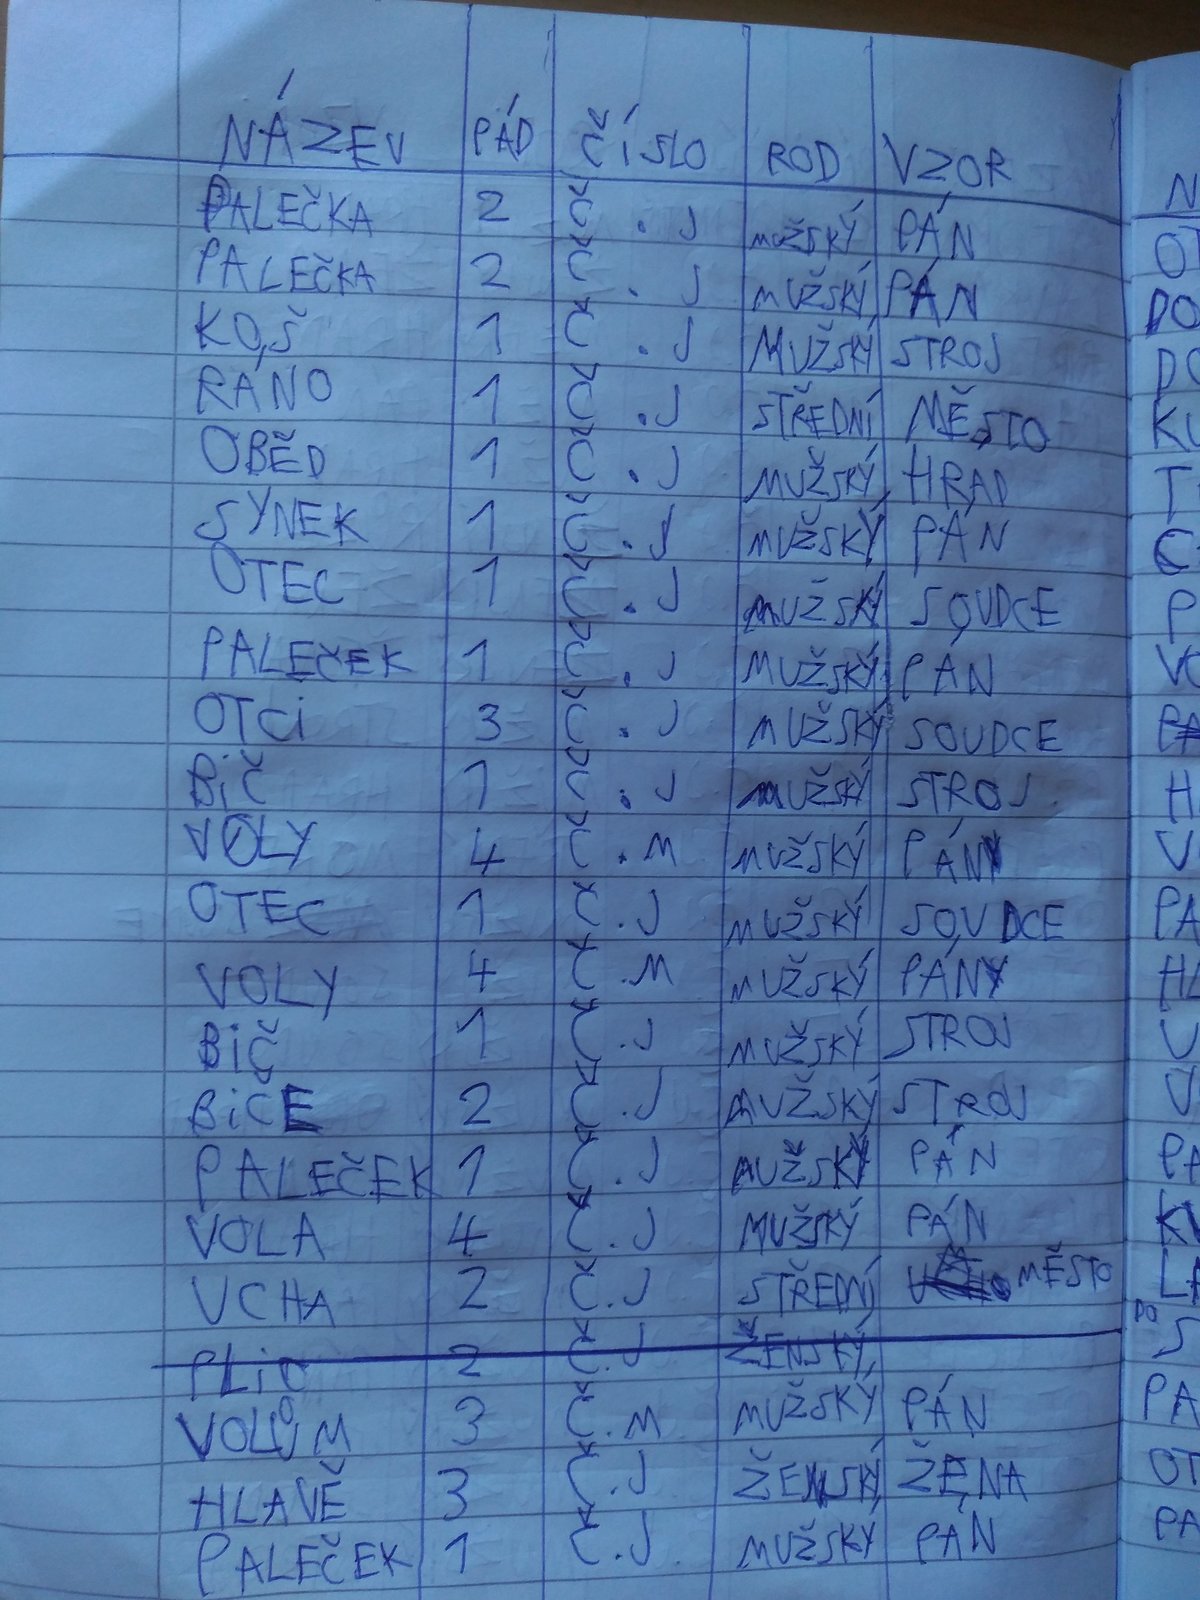 NÁZEV PÁD ČÍSLO ROD VZOR
PALEČKA 2 Č.J MUŽSKÝ PÁN
PALEČKA 2 Č.J MUŽSKÝ PÁN
KOŠ 1 Č.J MUŽSKÝ STROJ
RÁNO 1 Č.J STŘEDNÍ MĚSTO
OBĚD 1 Č.J MUŽSKÝ HRAD
SYNEK 1 Č.J MUŽSKÝ PÁN
OTEC 1 Č.J MUŽSKÝ SOUDCE
PALEČEK 1 Č.J MUŽSKÝ PÁN
OTCI 3 Č.J MUŽSKÝ SOUDCE
BIČ 1 Č.J MUŽSKÝ STROJ
VOLY 4 Č.M MUŽSKÝ PÁNY
OTEC 1 Č.J MUŽSKÝ SOUDCE
VOLY 4 Č.M MUŽSKÝ PÁNY
BIČ 1 Č.J MUŽSKÝ STROJ
BIČE 2 Č.J MUŽSKÝ STROJ
PALEČEK 1 Č.J MUŽSKÝ PÁN
VOLA 4 Č.J MUŽSKÝ PÁN
UCHA 2 Č.J STŘEDNÍ MĚSTO
PLIC 2 Č.J ŽENSKÝ
VOLŮM 3 Č.M MUŽSKÝ PÁN
HLAVĚ 3 Č.J ŽENSKÝ ŽENA
PALEČEK 1 Č.J MUŽSKÝ PÁN